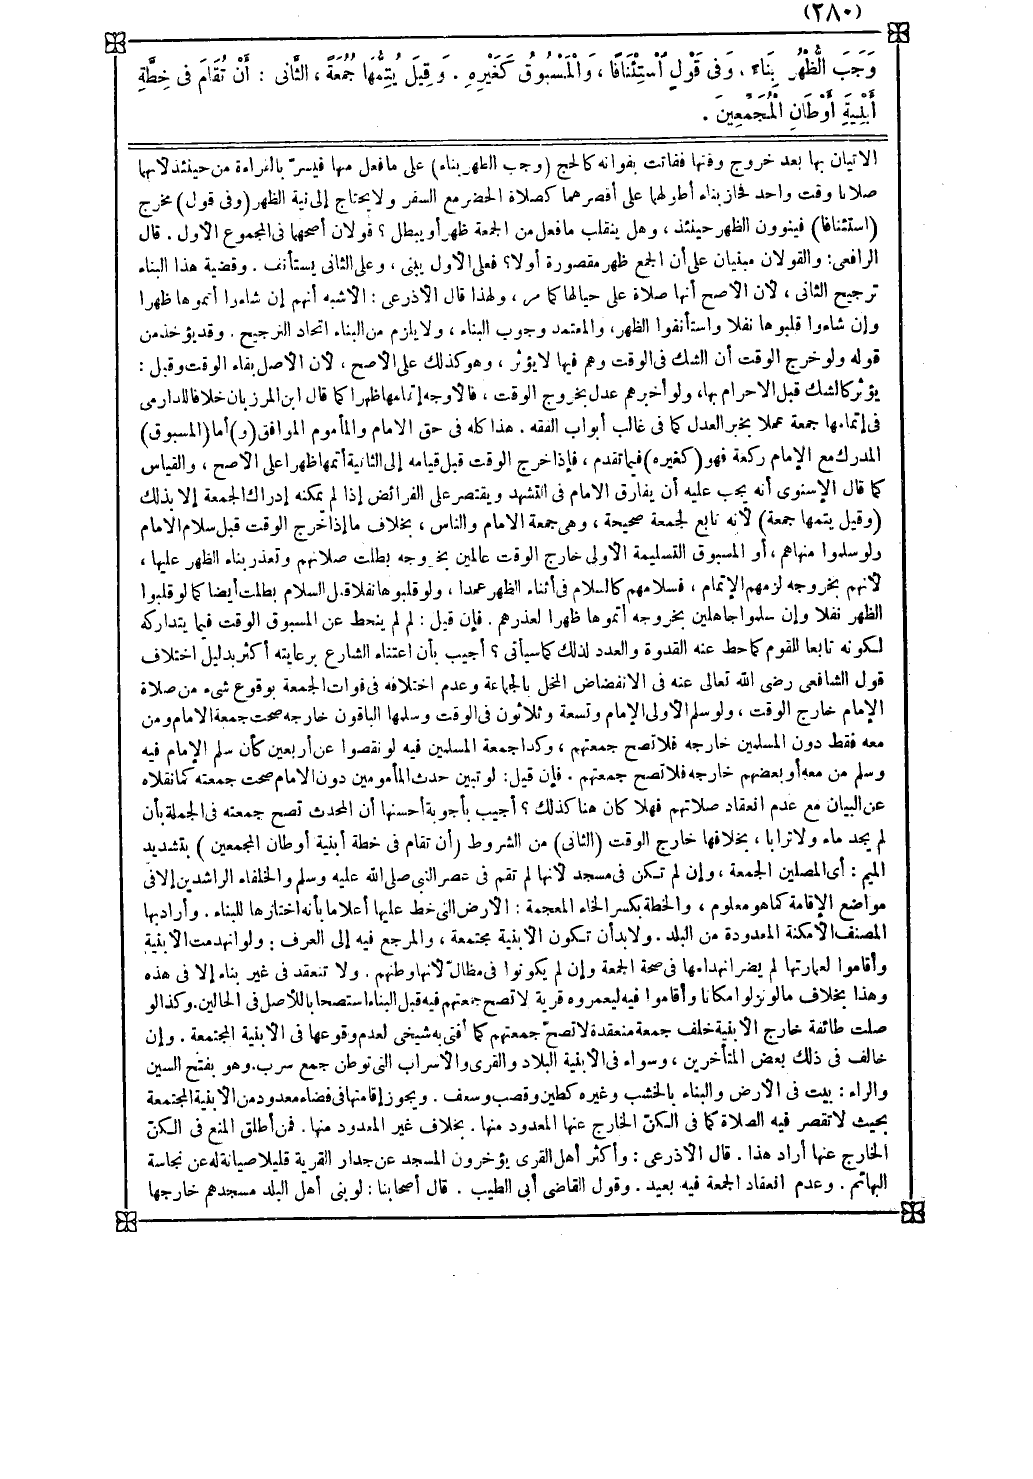 (٢٨٠)
وَجَبَ الظُّهْرُ بِنَاءً ، وَفِى قَوْلٍ ٱسْتِئْنَافًا ، وَالْمَسْبُوقُ كَغَيْرِهِ . وَقِيلَ يُتِمُّهَا جُمُعَةً ، الثَّانِى : أَنْ تُقَامَ فِى خِطَّةِ
أَبْنِيَةِ أَوْطَانِ الْمُجَمِّعِينَ .
الاتيان بها بعد خروج وقتها ففاتت بفواته كالحج (وجب الظهر بناء) على ما فعل منها فيسرّ بالقراءة من حينئذ لأنهما
صلاتا وقت واحد فجاز بناء أطولهما على أقصرهما كصلاة الحضر مع السفر ولا يحتاج إلى نية الظهر (وفى قول) مخرج
(استئنافا) فينوون الظهر حينئذ ، وهل ينقلب ما فعل من الجمعة ظهر أو يبطل ؟ قولان أصحهما فى المجموع الأول . قال
الرافعى : والقولان مبنيان على أن الجمع ظهر مقصورة أولا ؟ فعلى الأول يبنى ، وعلى الثانى يستأنف . وقضية هذا البناء
ترجيح الثانى ، لأن الأصح أنها صلاة على حيالها كما مر ، ولهذا قال الأذرعى : الأشبه أنهم إن شاءوا أتموها ظهرا
وإن شاءوا قلبوها نفلا واستأنفوا الظهر ، والمعتمد وجوب البناء ، ولا يلزم من البناء اتحاد الترجيح . وقد يؤخذ من
قوله ولو خرج الوقت أن الشك فى الوقت وهم فيها لا يؤثر ، وهو كذلك على الأصح ، لأن الأصل بقاء الوقت وقيل :
يؤثر كالشك قبل الاحرام بها ، ولو أخبرهم عدل بخروج الوقت ، فالأوجه إتمامها ظهرا كما قال ابن المرزبان خلافا للدارمى
فى إتمامها جمعة عملا بخبر العدل كما فى غالب أبواب الفقه . هذا كله فى حق الامام والمأموم الموافق (و) أما (المسبوق)
المدرك مع الإمام ركعة فهو (كغيره) فيما تقدم ، فإذا خرج الوقت قبل قيامه إلى الثانية أتمها ظهرا على الأصح ، والقياس
كما قال الإسنوى أنه يجب عليه أن يفارق الامام فى التشهد ويقتصر على الفرائض إذا لم يمكنه إدراك الجمعة إلا بذلك
(وقيل يتمها جمعة) لأنه تابع لجمعة صحيحة ، وهى جمعة الامام والناس ، بخلاف ما إذا خرج الوقت قبل سلام الامام
ولو سلموا منها هم ، أو المسبوق التسليمة الأولى خارج الوقت عالمين بخروجه بطلت صلاتهم وتعذر بناء الظهر عليها ،
لأنهم بخروجه لزمهم الإتمام ، فسلامهم كالسلام فى أثناء الظهر عمدا ، ولو قلبوها نفلا قبل السلام بطلت أيضا كما لو قلبوا
الظهر نفلا وإن سلموا جاهلين بخروجه أتموها ظهرا لعذرهم . فإن قيل : لم لم ينحط عن المسبوق الوقت فيما يتداركه
لكونه تابعا للقوم كما حط عنه القدوة والعدد لذلك كما سيأتى ؟ أجيب بأن اعتناء الشارع برعايته أكثر بدليل اختلاف
قول الشافعى رضى الله تعالى عنه فى الانفضاض المخل بالجماعة وعدم اختلافه فى فوات الجمعة بوقوع شىء من صلاة
الإمام خارج الوقت ، ولو سلم الأولى الإمام وتسعة وثلاثون فى الوقت وسلمها الباقون خارجه صحت جمعة الامام ومن
معه فقط دون المسلمين خارجه فلا تصح جمعتهم ، وكذا جمعة المسلمين فيه لو نقصوا عن أربعين كأن سلم الإمام فيه
وسلم من معه أو بعضهم خارجه فلا تصح جمعتهم . فإن قيل : لو تبين حدث المأمومين دون الامام صحت جمعته كما نقلاه
عن البيان مع عدم انعقاد صلاتهم فهلا كان هنا كذلك ؟ أجيب بأجوبة أحسنها أن المحدث تصح جمعته فى الجملة بأن
لم يجد ماء ولا ترابا ، بخلافها خارج الوقت (الثانى) من الشروط (أن تقام فى خطة أبنية أوطان المجمعين ) بتشديد
الميم : أى المصلين الجمعة ، وإن لم تكن فى مسجد لأنها لم تقم فى عصر النبى صلى الله عليه وسلم والخلفاء الراشدين إلا فى
مواضع الإقامة كما هو معلوم ، والخطة بكسر الخاء المعجمة : الأرض التى خط عليها أعلاما بأنه اختارها للبناء . وأراد بها
المصنف الأمكنة المعدودة من البلد . ولا بد أن تكون الأبنية مجتمعة ، والمرجع فيه إلى العرف : ولو انهدمت الأبنية
وأقاموا لعمارتها لم يضر انهدامها فى صحة الجمعة وإن لم يكونوا فى مظالّ لأنها وطنهم . ولا تنعقد فى غير بناء إلا فى هذه
وهذا بخلاف ما لو نزلوا مكانا وأقاموا فيه ليعمروه قرية لا تصح جمعتهم فيه قبل البناء استصحابا للأصل فى الحالين . وكذا لو
صلت طائفة خارج الأبنية خلف جمعة منعقدة لا تصحّ جمعتهم كما أفتى به شيخى لعدم وقوعها فى الأبنية المجتمعة . وإن
خالف فى ذلك بعض المتأخرين ، وسواء فى الأبنية البلاد والقرى والأسراب التى توطن جمع سرب . وهو بفتح السين
والراء : بيت فى الأرض والبناء بالخشب وغيره كطين وقصب وسعف . ويجوز إقامتها فى فضاء معدود من الأبنية المجتمعة
بحيث لا تقصر فيه الصلاة كما فى الكنّ الخارج عنها المعدود منها . بخلاف غير المعدود منها . فمن أطلق المنع فى الكنّ
الخارج عنها أراد هذا . قال الأذرعى : وأكثر أهل القرى يؤخرون المسجد عن جدار القرية قليلا صيانة له عن نجاسة
البهائم . وعدم انعقاد الجمعة فيه بعيد . وقول القاضى أبى الطيب . قال أصحابنا : لو بنى أهل البلد مسجدهم خارجها